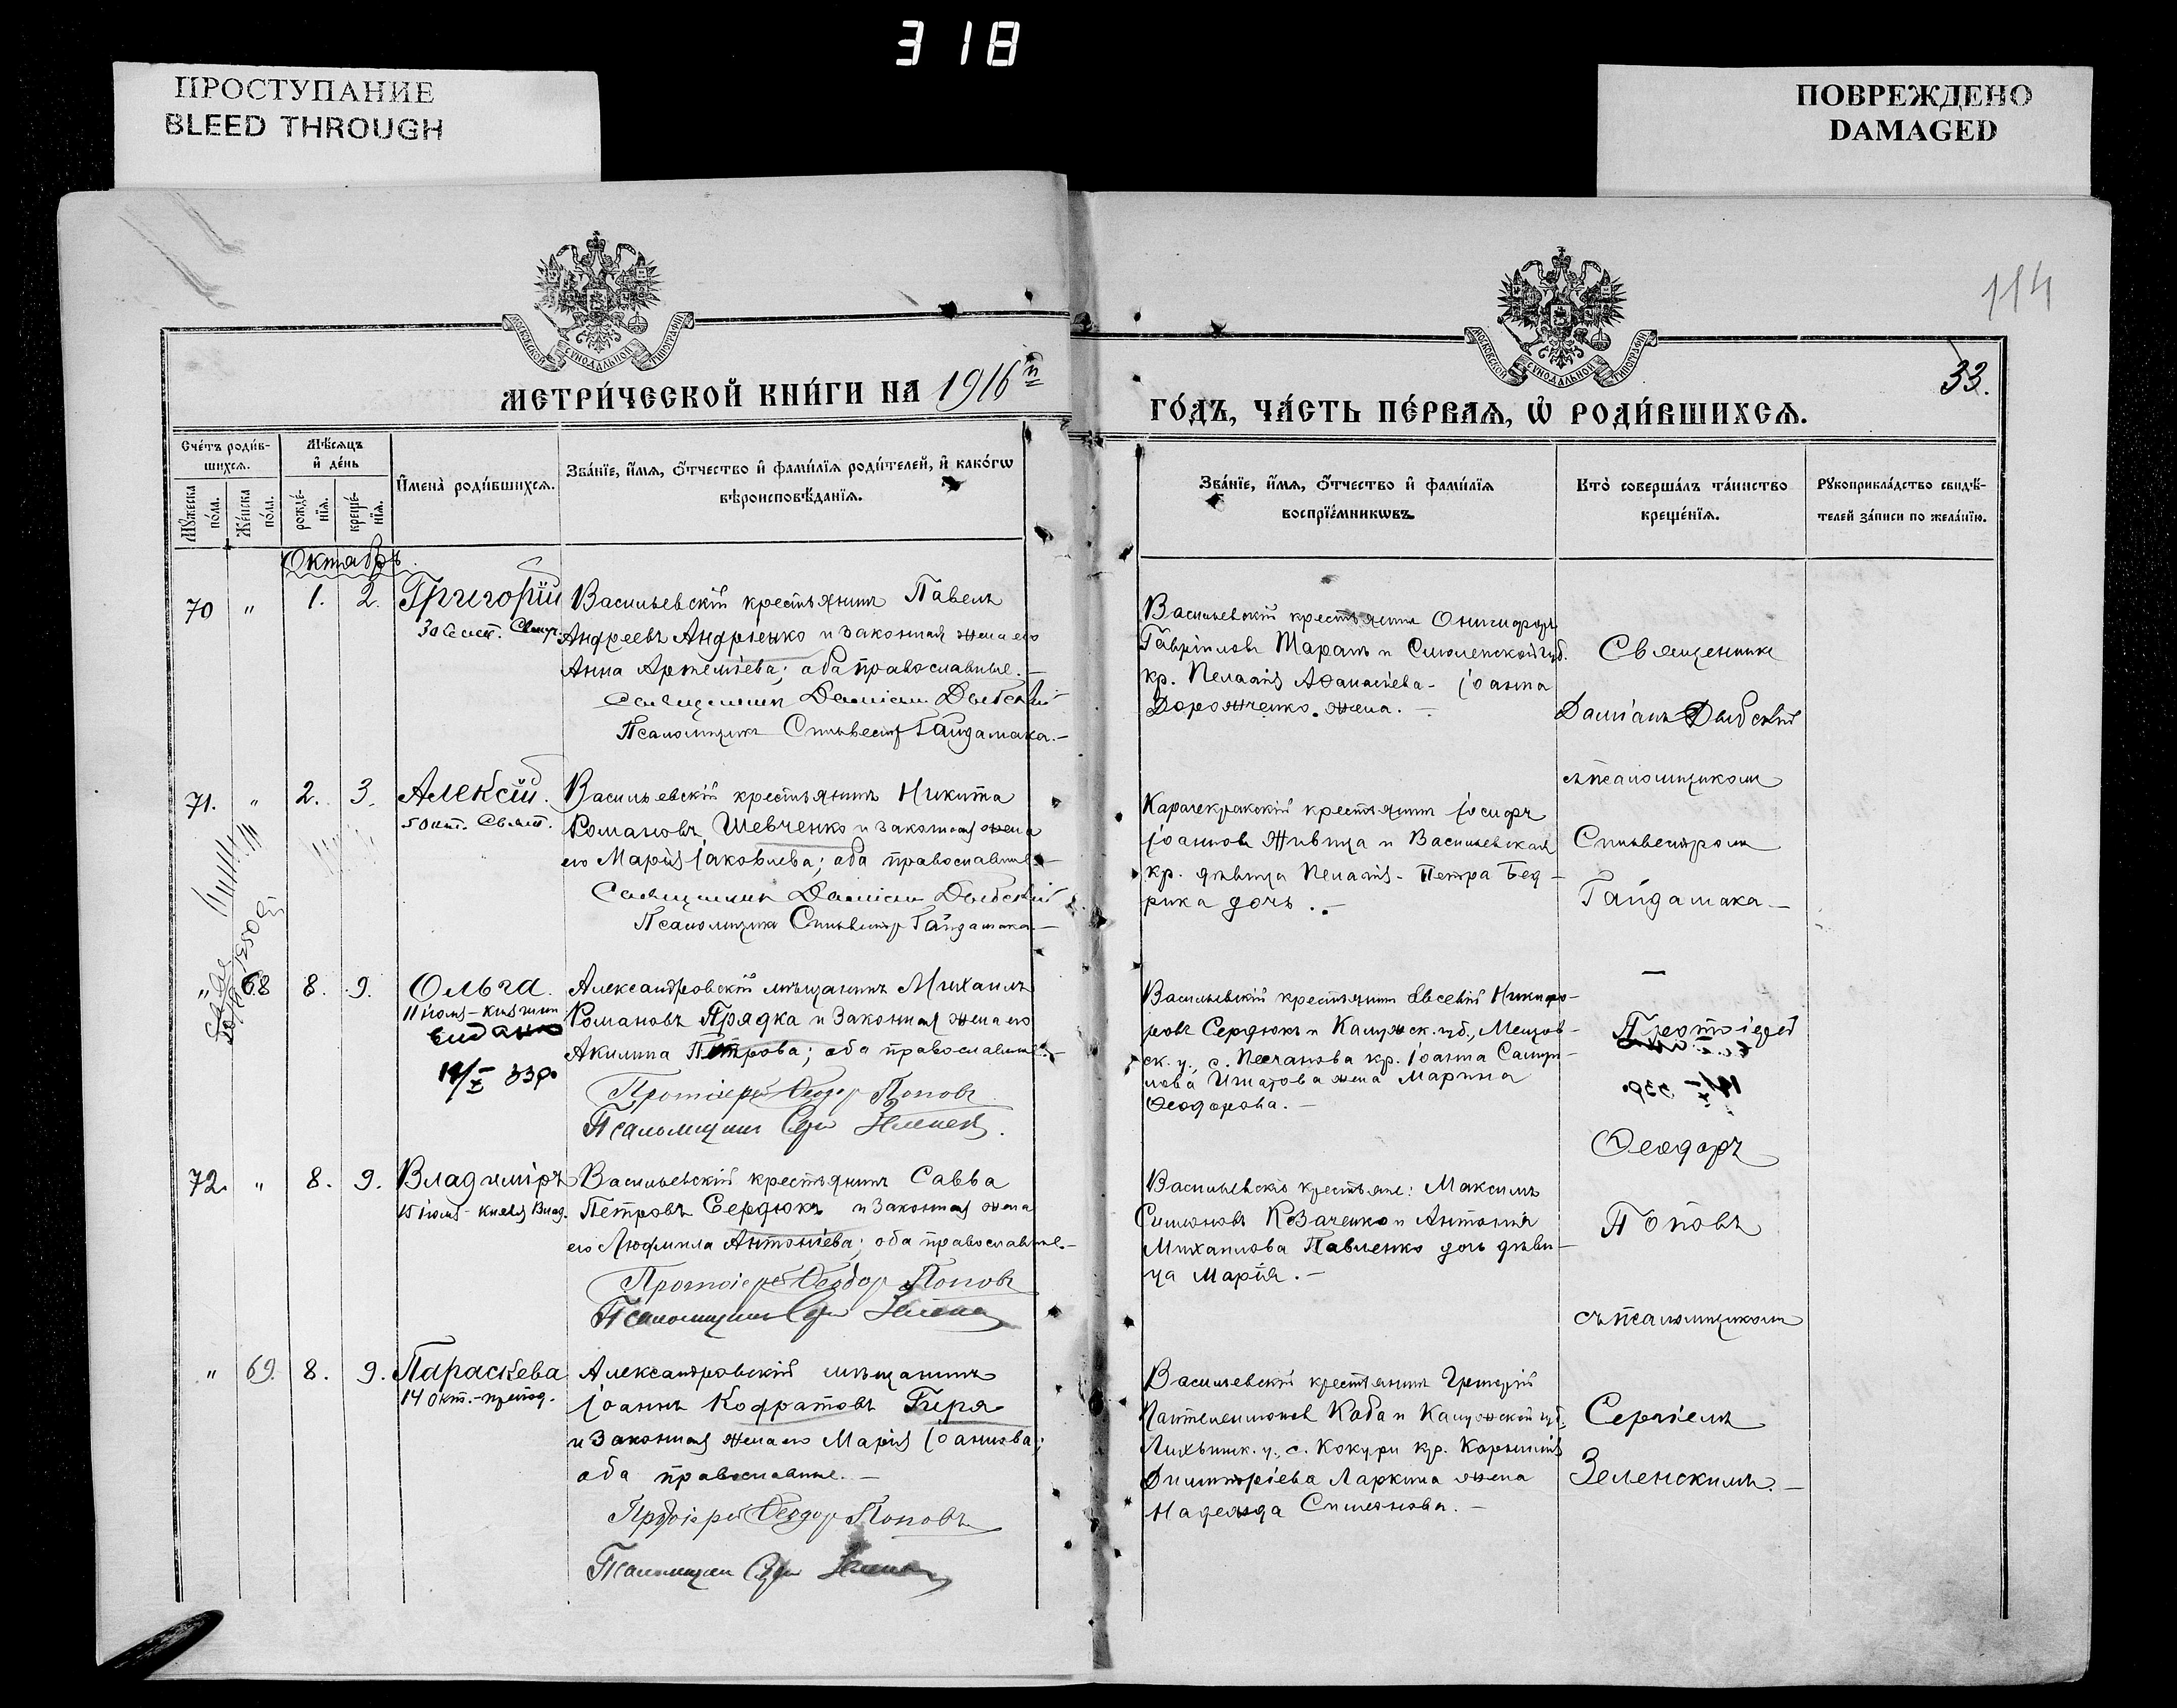 318
ПРОСТУПАНИЕ
BLEED THROUGH
ПОВРЕЖДЕНО
DAMAGED
114
МОСКОВСКОЙ СѴНОДАЛЬНОЙ ТИПОГРАФІИ
МОСКОВСКОЙ СѴНОДАЛЬНОЙ ТИПОГРАФІИ
33.
МЕТРИ́ЧЕСКОЙ КНИ́ГИ НА 1916й
ГО́ДЪ, ЧА́СТЬ ПЕ́РВАЯ, Ѡ҆ РОДИ́ВШИХСЯ.
Сче́тъ роди́в-
шихся.
Мѣ́сяцъ
и҆ де́нь
Мꙋ́жеска
по́ла.
Же́нска
по́ла.
рожде́-
нїя.
креще́-
нїя.
И҆мена̀ роди́вшихся.
Зва́нїе, и҆́мя, ѻ҆́тчество и҆ фами́лїя роди́телей, и҆ како́гѡ
вѣроисповѣ́данїя.
Зва́нїе, и҆́мя, ѻ҆́тчество и҆ фами́лїя
воспрїе́мникѡвъ.
Кто̀ соверша́лъ та́инство
креще́нїя.
Рꙋкоприкла́дство свидѣ́-
телей за́писи по жела́нїю.
Октябрь
70 " 1. 2. Григорій
30 Сент.
Васильевскій крестьянинъ Павелъ
Андреевъ Андріенко и законная жена его
Анна Артеміева; оба православные.–
Священникъ Даміанъ Дыбскій
Псаломщикъ Сильвестръ Гайдамака.–
Васильевскій крестьянинъ Онисифоръ
Гавріиловъ Шарань и Смоленской губ.
кр. Пелагія Афанасіева – Іоанна
Дорожченко жена. –
Священникъ
Даміанъ Дыбскій
съ псаломщикомъ
Сильвестромъ
Гайдамака –
71. " 2. 3. Алексій.
5 окт. Свят.
Васильевскій крестьянинъ Никита
Романовъ Шевченко и законная жена
его Марія Іаковлева; оба православные
Священникъ Даміанъ Дыбскій
Псаломщикъ Сильвестръ Гайдамака –
Карачекракскій крестьянинъ Іосифъ
Іоанновъ Живица и Васильевская
кр. дѣвица Пелагія – Петра Бед-
рика дочь. –
" 68 8. 9. Ольга.
11 іюля – княгини
видано
33р.
Александровскій мѣщанинъ Михаилъ
Романовъ Прядка и законная жена его
Акилина Петрова; оба православные. –
Протоіерей Ѳеодор Поповъ
Псаломщикъ
Васильевскій крестьянинъ Евсевій Никифо-
ровъ Сердюкъ и Калужск. губ., Мещов-
ск. у., с. Песчанова кр. Іоанна Самуи-
лова Игнатова жена Марина
Ѳеодорова. –
Протоіерей
Ѳеодоръ
Поповъ
съ псаломщикомъ
Сергіемъ
Зеленскимъ. –
72. " 8. 9. Владиміръ
15 іюля – князя Влад.
Васильевскій крестьянинъ Савва
Петровъ Сердюкъ и законная жена
его Людмила Антоніева; оба православные. –
Протоіерей Ѳеодор Поповъ
Псаломщикъ
Васильевскіе крестьяне: Максимъ
Симеоновъ Козаченко и Антонія
Михаилова Павленко дочь дѣви-
ца Марія. –
" 69. 8. 9. Параскева
14 окт. – препод.
Александровскій мѣщанинъ
Іоаннъ Кодратовъ Гиря
и законная жена его Марія Іоаннова;
оба православные. –
Протоіерей Ѳеодор Поповъ
Псаломщик
Васильевскій крестьянинъ Григорій
Пантелеимоновъ Коба и Калужской губ.
Лихвинск. у., с. Кокури кр. Корнилія
Димитріева Ларкина жена
Надежда Симеонова. –